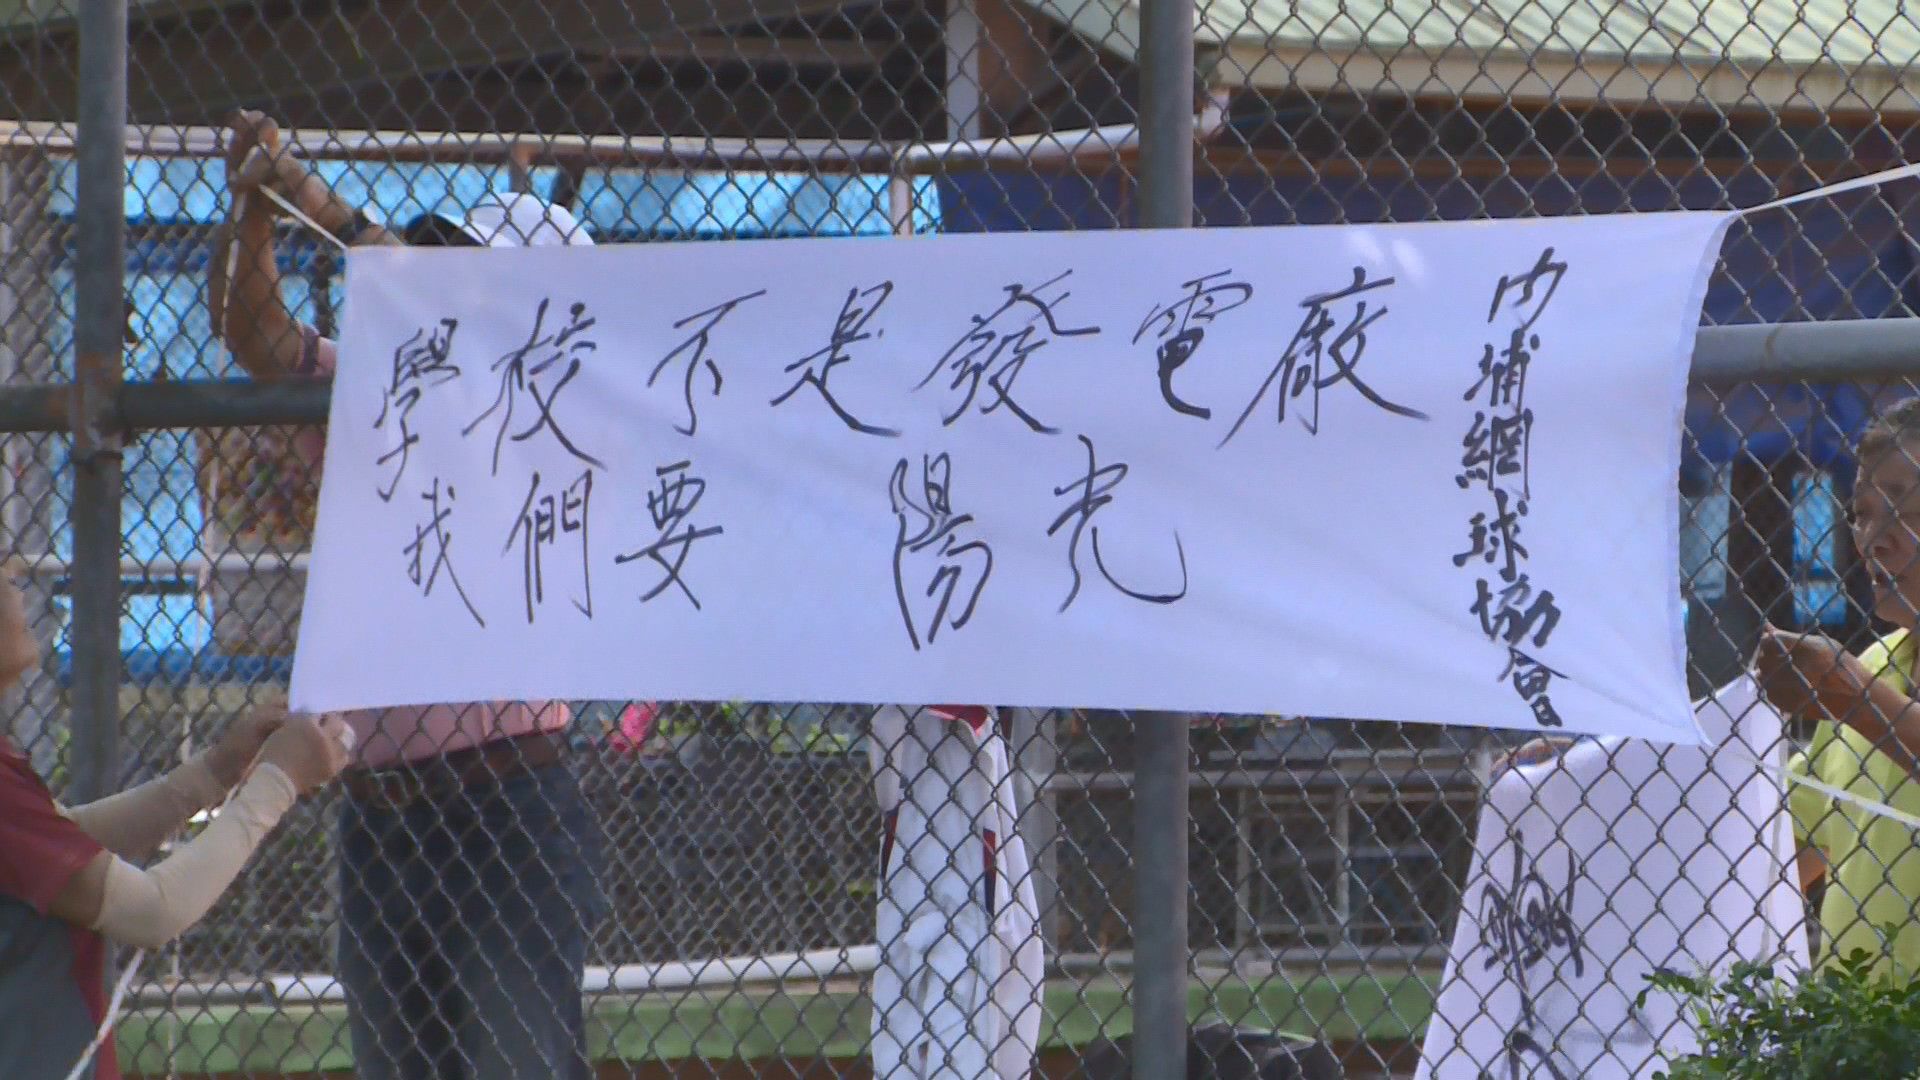 學校不是發電廠
我們要 陽光
內埔網球協會